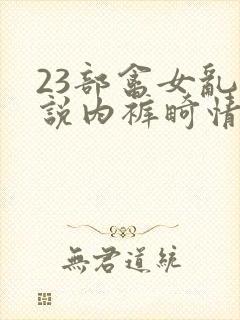 23部畲女乱
説内裤畸情
無君道統